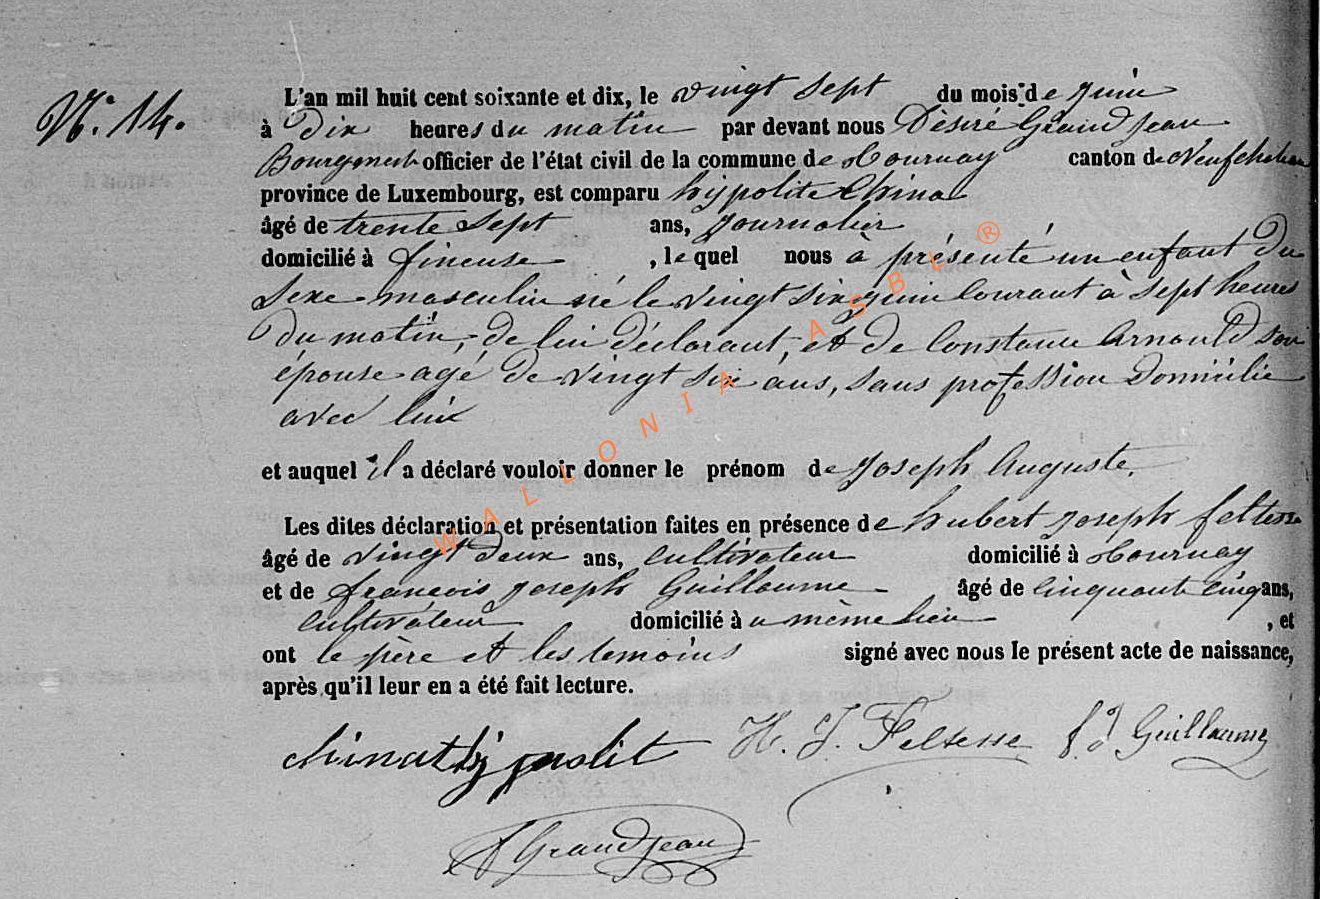 N.° 14.
L'an mil huit cent soixante et dix, le vingt sept du mois de juin
à dix heures du matin par devant nous Désiré Grandjean
Bourgmest officier de l'état civil de la commune de Tournay canton de Neufchateau
province de Luxembourg, est comparu hypolite Chinat
âgé de trente sept ans, journalier
domicilié à fineuse, lequel nous à présenté un enfant du
Sexe masculin né le vingt six juin Courant à sept heures
du matin, de lui déclarant, et de Constance Arnould son
épouse agé de vingt six ans, sans profession domicilié
avec lui
et auquel il a déclaré vouloir donner le prénom de Joseph Auguste.
Les dites déclaration et présentation faites en présence de hubert joseph feltesse
âgé de vingt deux ans, cultivateur domicilié à Tournay
et de francois joseph Guillaume âgé de cinquante cinq ans,
Cultivateur domicilié à u même lieu, et
ont le père et les temoins signé avec nous le présent acte de naissance,
après qu'il leur en a été fait lecture.
chinat hypolit H. J. Feltesse f. j. Guillaume
Grandjean
WALLONIA ASBL ®